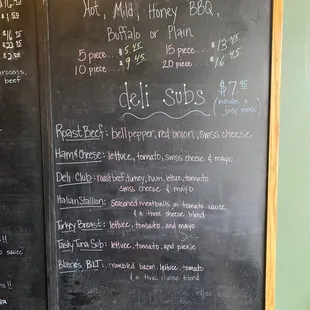 Hot, Mild, Honey BBQ,
Buffalo or Plain
5 piece... $5.45 15 piece... $13.45
10 piece... $9.45 20 piece... $16.45
deli subs
$7.95
Includes a
Roast Beef: bell pepper, red onion, swiss cheese
Ham & Cheese: lettuce, tomato, swiss cheese & mayo
Deli Club: roast beef, turkey, ham, lettuce, tomato
swiss cheese & mayo
Italian Stallion: seasoned meatballs in tomato sauce
& a three cheese blend
Turkey Breast: lettuce, tomato, and mayo
Tasty Tuna Sub: lettuce, tomato, and pickle
BLT: bacon, lettuce, tomato
& a three cheese blend